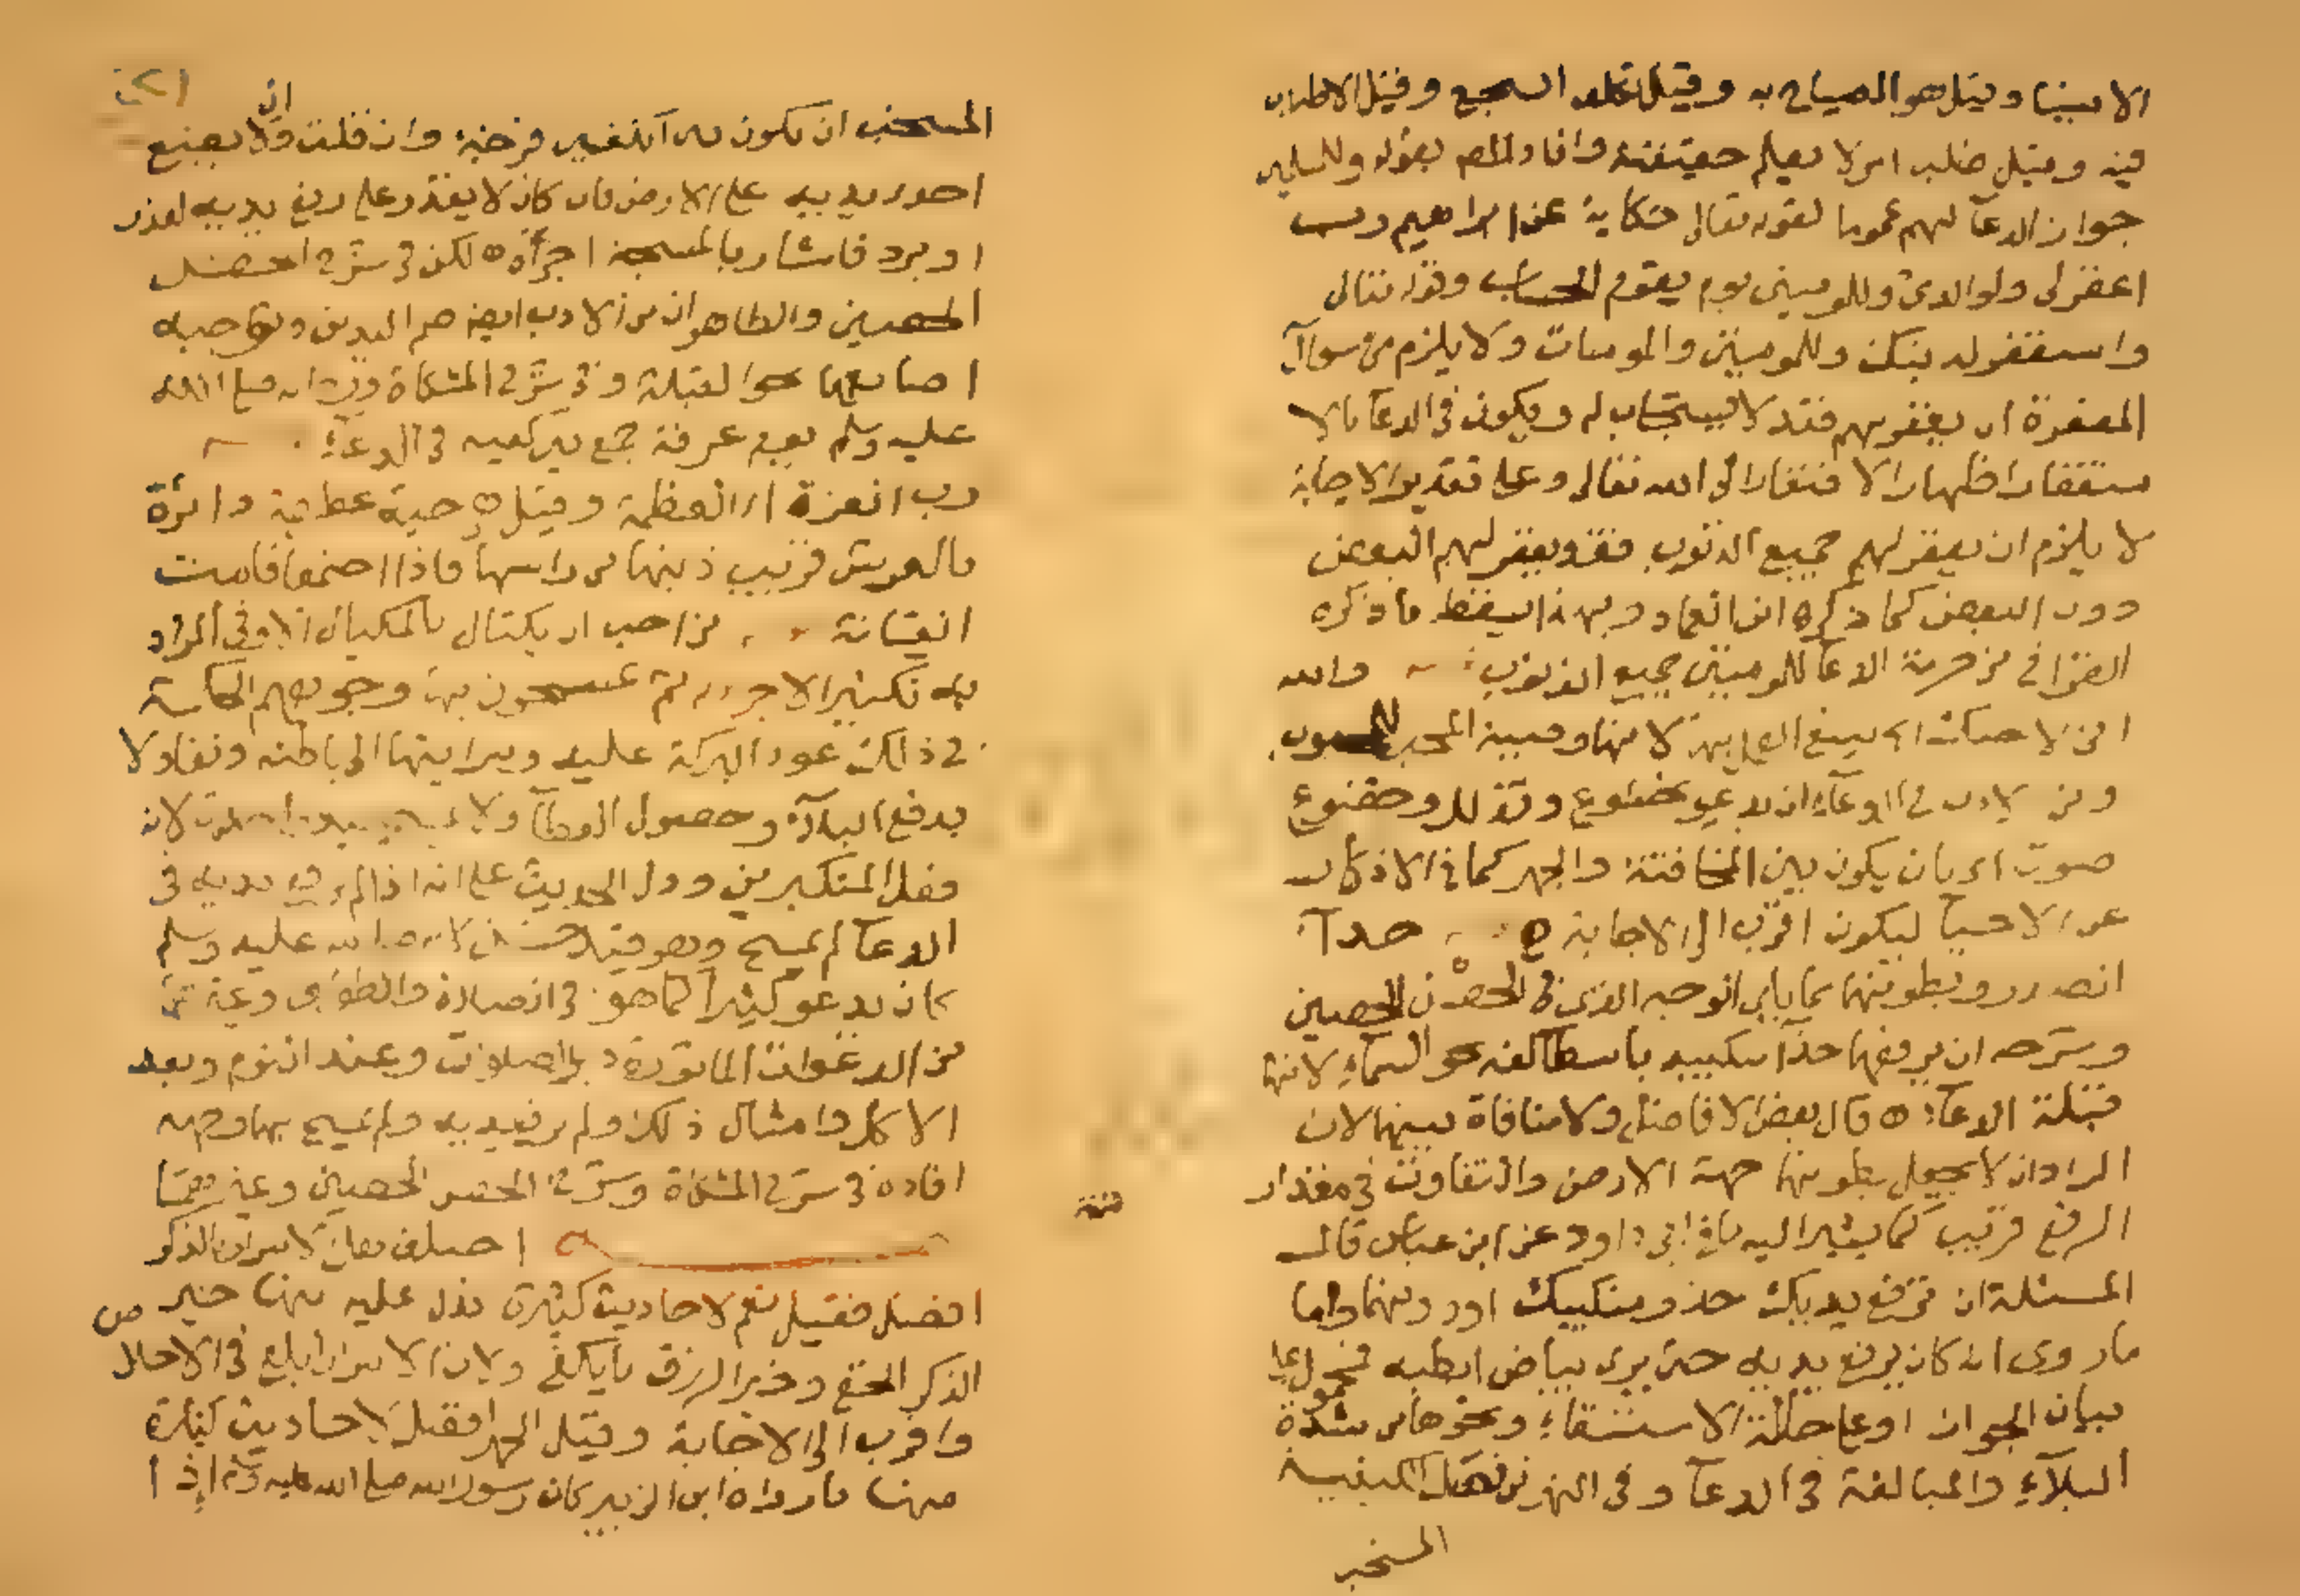 الانبيا وقيل هو الصياح به وقيل تكلف السجع وقيل الاطناب
فيه وقيل طلب امر لا يعلم حقيقته وافاد المصـ بقوله وللمسلمين
جواز الدعآ لهم عموما لقوله تعالى حكاية عن ابراهيم رب
اغفر لى ولوالدى وللمومنين يوم يقوم الحساب وقوله تعالى
واستغفر لذنبك وللمومنين والمومنات ولا يلزم من سوآل
المغفرة ان يغفر لهم فقد لا يستجاب له ويكون فى الدعآ بالا
ستغفار اظهار الافتقار الى الله تعالى وعلى تقدير الاجابة
لا يلزم ان يغفر لهم جميع الذنوب فقد يغفر لهم البعض
دون البعض كما ذكره ابن العماد وبهذا يسقط ما ذكره
القرافى من حرمة الدعآ للمومنين بجميع الذنوب والله
ومن الادب فى الدعآء ان يدعى بخشوع وتذلل وخضوع
صوت اى بان يكون بين المخافتة والجهر كما فى الاذكار
عن الاحيآ ليكون اقرب الى الاجابة حذآء
الصدر وبطونهما مما يلى الوجه الذى فى الحصن الحصين
وشرحه ان يرفعهما حذآ منكبيه باسطا كفيه نحو السمآء لانها
قبلة الدعآء قال بعض الافاضل ولا منافاة بينهما لان
المراد ان لا يجعل بطونهما جهة الارض والتفاوت فى مقدار
الرفع قريب كما يشير اليه ما فى ابى داود عن ابن عباس قال
المسئلة ان ترفع يديك حذو منكبيك او دونهما واما
ما روى انه كان يرفع يديه حتى يرى بياض ابطيه فمحمول على
بيان الجواز او على حالة الاستسقآء ونحوها من شدة
البلآء والمبالغة فى الدعآ وفى النهر من فعل كيفيه
المستحب
المستحب ان يكون بين الكفين فرجة وان قلت وان لا يضع
احدى يديه على الاخرى فان كان لا يقدر على رفع يديه لعذر
او برد فاشار بالمسبحة اجزأه لكن فى شرح الحصن
الحصين والظاهر ان من الادب ايضا ضم اليدين وتوجيه
اصابعهما نحو القبلة وفى شرح المشكاة ورد انه صلى الله
عليه وسلم يوم عرفة جمع بين كفيه فى الدعآء
رب العزة اى العظمة وقيل حية عظيمة دائرة
بالعرش قريب ذنبها من راسها فاذا اجتمعا قامت
القيامة من احب ان يكتال بالمكيال الاوفى المراد
به تكثير الاجر ثم يمسحون بها وجوههم الحكمة
فى ذلك عود البركة عليه وسرايتها الى باطنه وتفاولا
بدفع البلآء وحصول العطآ ولا يمسح بيد واحدة لانه
فعل المتكبرين ودل الحديث على انه اذا لم يرفع يديه فى
الدعآ لم يمسح وهو قيد حسن لانه صلى الله عليه وسلم
كان يدعو كثيرا كما هو فى الصلاة والطواف وغيرهما
من الدعوات الماثورة دبر الصلوات وعند النوم وبعد
الاكل وامثال ذلك ولم يرفع يديه ولم يمسح بهما وجهه
افاده فى شرح المشكاة وشرح الحصن الحصين وغيرهما
تتمة اختلف هل الاسرار بالذكر
افضل فقيل نعم لاحاديث كثيرة تدل عليه منها خير
الذكر الخفى وخير الرزق ما يكفى ولان الاسرار ابلغ فى الاخلاص
واقرب الى الاجابة وقيل الجهر افضل لاحاديث كثيرة
منها ما رواه ابن الزبير كان رسول الله صلى الله عليه وسلم اذا